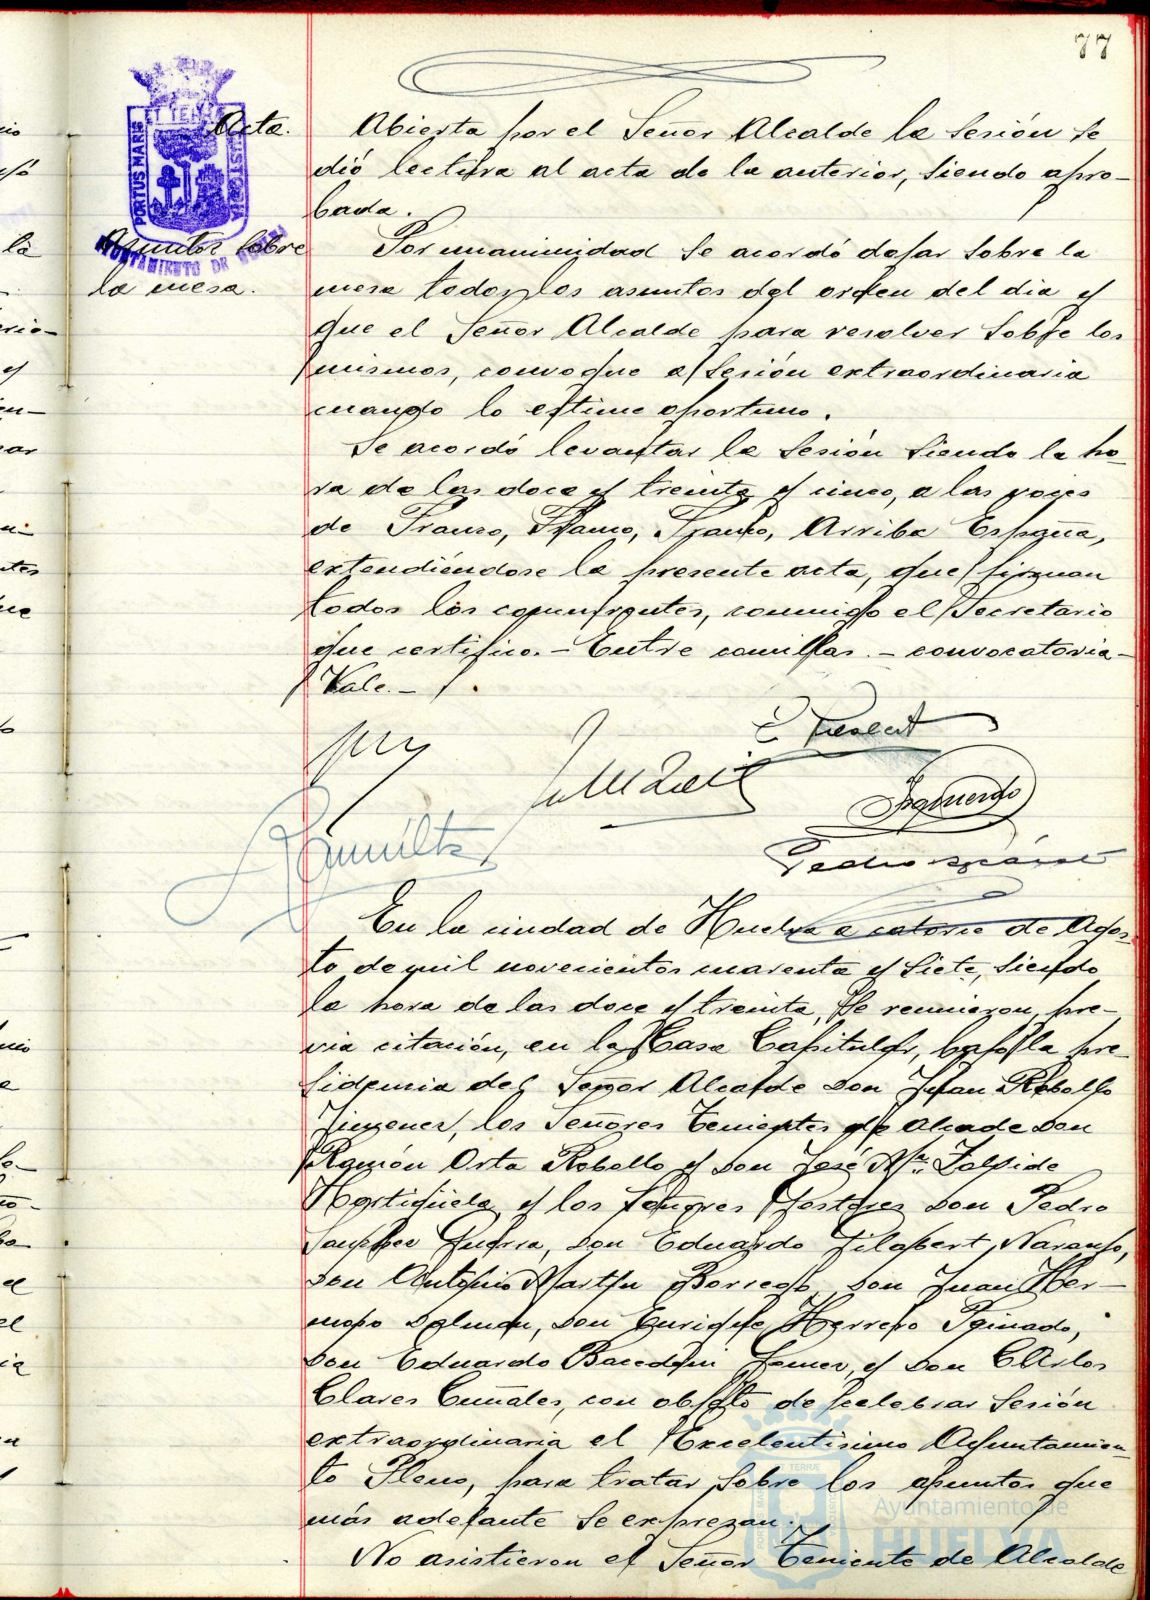 77
Acta.
Abierta por el Señor Alcalde la sesión se
dió lectura al acta de la anterior, siendo apro-
bada.
Asuntos sobre
la mesa.
Por unanimidad se acordó dejar sobre la
mesa todos los asuntos del orden del dia y
que el Señor Alcalde para resolver sobre los
mismos, convoque a sesión extraordinaria
cuando lo estime oportuno.
Se acordó levantar la sesión siendo la ho-
ra de las doce y treinta y cinco, a las voces
de Franco, Franco, Franco, Arriba España,
extendiéndose la presente acta, que firman
todos los concurrentes, conmigo el Secretario
que certifico.- Entre comillas.- convocatoria-
Vale.-
Izquierdo
Pedro
En la ciudad de Huelva a catorce de Agos-
to de mil novecientos cuarenta y siete, siendo
la hora de las doce y treinta, se reunieron, pre-
via citación, en la Casa Capitular, bajo la pre-
sidencia del Señor Alcalde Don Juan Rebollo
Jimenez, los Señores Tenientes de Alcalde Don
Ramón Orta Rebollo y Don José Mª. Zalvide
Hortigüela y los Señores Gestores Don Pedro
Sanchez Guerra, Don Eduardo Gilabert Naranjo,
Don Antonio Martín Borrego, Don Juan Her-
moso Delman, Don Enrique Herrero
Don Eduardo Gomez, y Don Carlos
Clares, con objeto de celebrar sesión
extraordinaria el Excelentisimo Ayuntamien-
to Pleno, para tratar sobre los asuntos que
más adelante se expresan.
No asistieron el Señor Teniente de Alcalde
PORTUS MARIS ET TERRAE CUSTODIA
AYUNTAMIENTO DE HUELVA
Ayuntamiento de
HUELVA